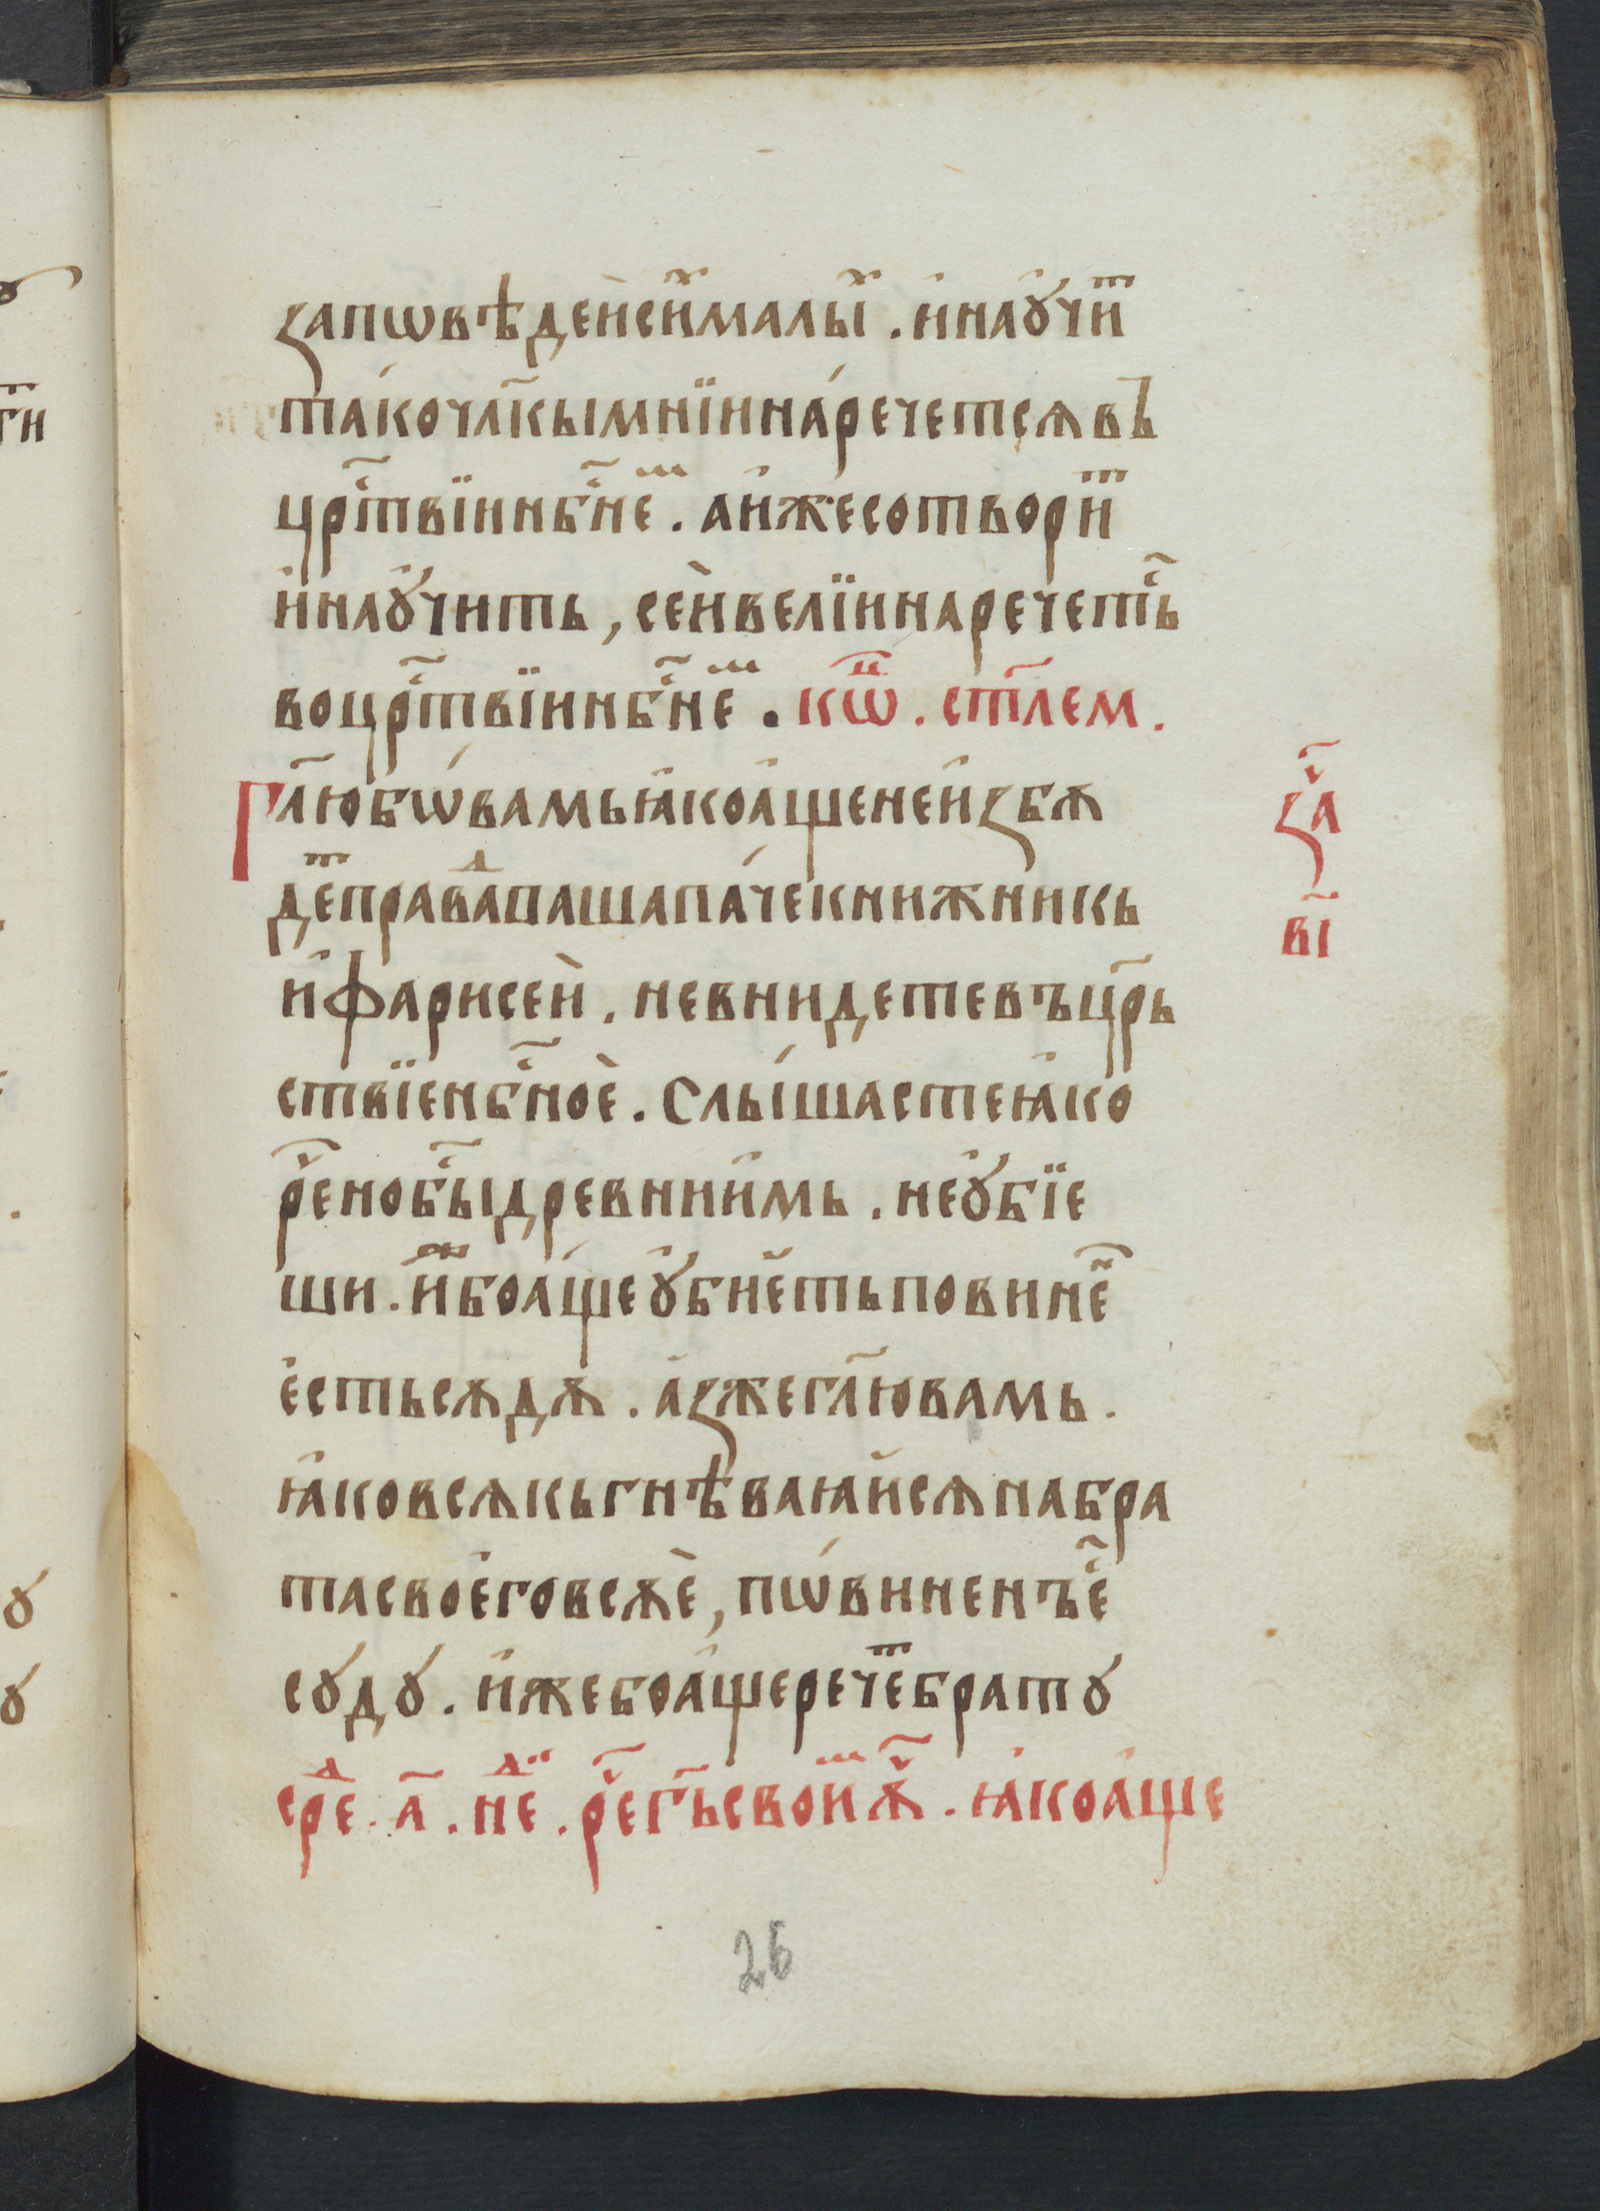 запѡвѣдеи҆сиⷯмалыⷯ . и҆нау҆чиⷮ
та́кочл҃кымнїинаречетсѧвъ
црⷭ҇твїинбⷭ҇неⷨ . аи҆жесотвориⷮ
и҆нау҆чить , сеи҆велїинаречетьⷭ
воцрⷭ҇твїинбⷭ҇неⷨ . кѡⷰ҇ . ст҃лем .
Гл҃юбѡвамьꙗ҆коа҆щенеи҆збѫ
деⷮправⷣавашапа́чекнижникь
и҆фарисеи҆ . невнидетевъцр҃ь
ствїенбⷭ҇ное҆ . Слы́шастеꙗ҆ко
реⷱ҇нобыⷭ҇древниимь . неу҆бїе
ши . иⷤ҇боа҆щеу҆биетьповинеⷩ҇
е҆стьсѫдѫ . а҆зжегл҃ювамь .
ꙗ҆ковсѧкьгнѣваꙗ҆исѧнабра
тасвоегоⷡсѫе҆ , пѡ́виненъеⷭ҇
суду . и҆жебоа҆щеречеⷮбрату
среⷣ . а҃ . неⷣ . реⷱ҇гьⷭ҇своиⷨ҇ѫⷱ҇ . ꙗ҆коа҆ще
заⷱ҇
в҃і
26